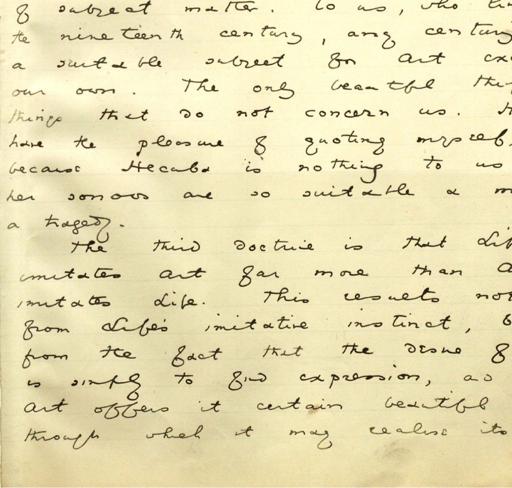 of subject matter. To us, who
the nineteenth century, any century
a suitable subject for art
our own. The only beautiful
things that do not concern us.
have the pleasure of quoting myself,
because Hecuba is nothing to us
her sorrows are so suitable a
a tragedy.
The third doctrine is that Life
imitates Art far more than
imitates Life. This results not
from Life's imitative instinct,
from the fact that the desire of
is simply to find expression,
Art offers it certain beautiful
through which it may realise its